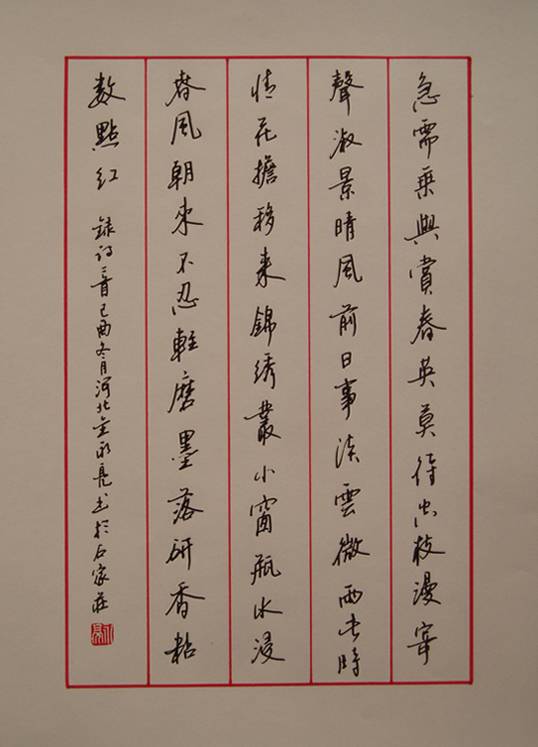 急需乘興賞春英莫待空枝漫寄
聲淑景晴風前日事淡雲微雨此時
情花擔移来錦绣叢小窗瓶水浸
春風朝來不忍輕磨墨落研香粘
数點紅 録詩二首己酉冬月河北金永亮书於石家莊